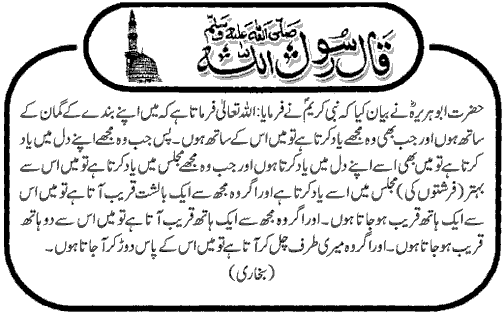 قال رسول اللہ صلی اللہ علیہ وسلم
حضرت ابو ہریرہؓ نے بیان کیا کہ نبی کریمؐ نے فرمایا: اللہ تعالیٰ فرماتا ہے کہ میں اپنے بندے کے گمان کے
ساتھ ہوں اور جب بھی وہ مجھے یاد کرتا ہے تو میں اس کے ساتھ ہوں۔ پس جب وہ مجھے اپنے دل میں یاد
کرتا ہے تو میں بھی اسے اپنے دل میں یاد کرتا ہوں اور جب وہ مجھے مجلس میں یاد کرتا ہے تو میں اس سے
بہتر (فرشتوں کی) مجلس میں اسے یاد کرتا ہے اور اگر وہ مجھ سے ایک بالشت قریب آتا ہے تو میں اس
سے ایک ہاتھ قریب ہو جاتا ہوں۔ اور اگر وہ مجھ سے ایک ہاتھ قریب آتا ہے تو میں اس سے دو ہاتھ
قریب ہو جاتا ہوں۔ اور اگر وہ میری طرف چل کر آتا ہے تو میں اس کے پاس دوڑ کر آ جاتا ہوں۔
(بخاری)